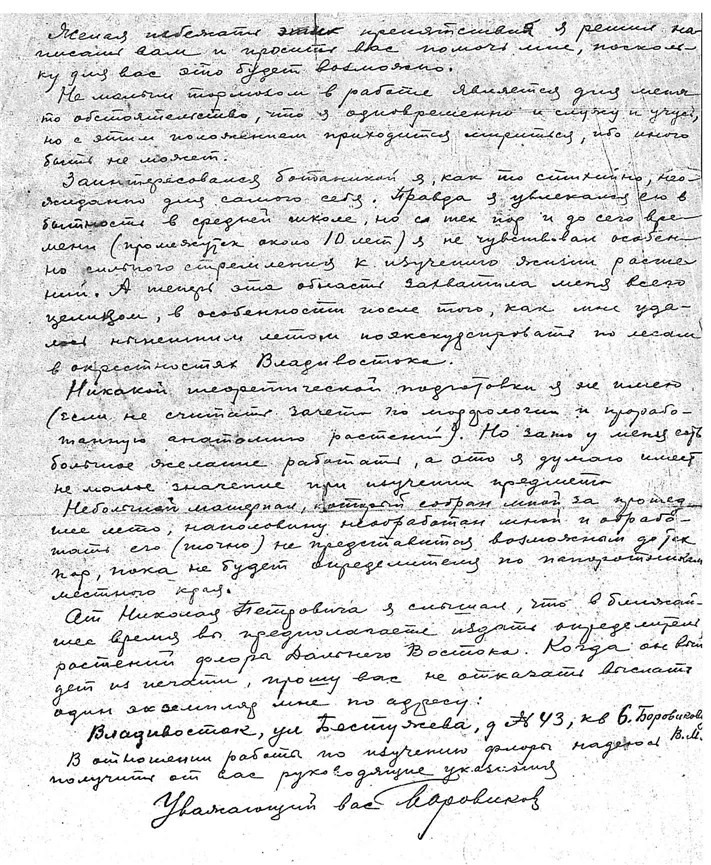 Желая избежать этих препятствий я решил на-
писать вам и просить вас помочь мне, посколь-
ку для вас это будет возможно.
Не малым тормозом в работе является для меня
то обстоятельство, что я одновременно и служу и учусь,
но с этим положением приходится мириться, ибо иного
быть не может.
Заинтересовался ботаникой я, как то стихийно, нео-
жиданно для самого себя. Правда я увлекался ею в
бытность в средней школе, но с тех пор и до сего вре-
мени (промежуток около 10 лет) я не чувствовал особен-
но сильного стремления к изучению жизни расте
ний. А теперь эта область захватила меня всего
целиком, в особенности после того, как мне уда-
лось нынешним летом поэкскурсировать по лесам
в окрестностях Владивостока.
Никакой теоретической подготовки я не имею
(если не считать зачета по морфологии и прорабо-
танную анатомию растений). Но зато у меня есть
большое желание работать, а это я думаю имеет
не малое значение при изучении предмета
Небольшой материал, который собран мной за прошед-
шее лето, наполовину необработан мной и обрабо-
тать его (точно) не представится возможным до тех
пор, пока не будет определителя по папоротникам
местного края.
От Николая Петровича я слышал, что в ближай-
шее время вы предполагаете издать определитель
растений флоры Дальнего Востока. Когда он вый
дет из печати, прошу вас не отказать выслать
один экземпляр мне по адресу:
Владивосток, ул Бестужева, д № 43, кв 6. Боровикову
В.М.
В отношении работы по изучению флоры надеюсь
получить от вас руководящие указания
Уважающий вас Боровиков